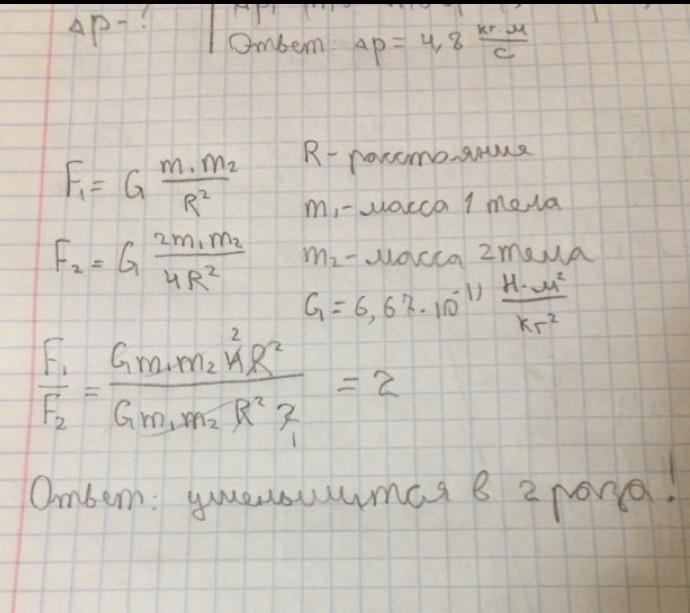 Δp - ?
Ответ: Δp = 4,8 кг·м/с
F₁ = G m₁m₂/R²
R - расстояние
m₁ - масса 1 тела
F₂ = G 2m₁m₂/4R²
m₂ - масса 2 тела
G = 6,67·10⁻¹¹ Н·м²/кг²
F₁/F₂ = Gm₁m₂ 4R²/Gm₁m₂ R² 2 = 2
2
1
Ответ: уменьшится в 2 раза!